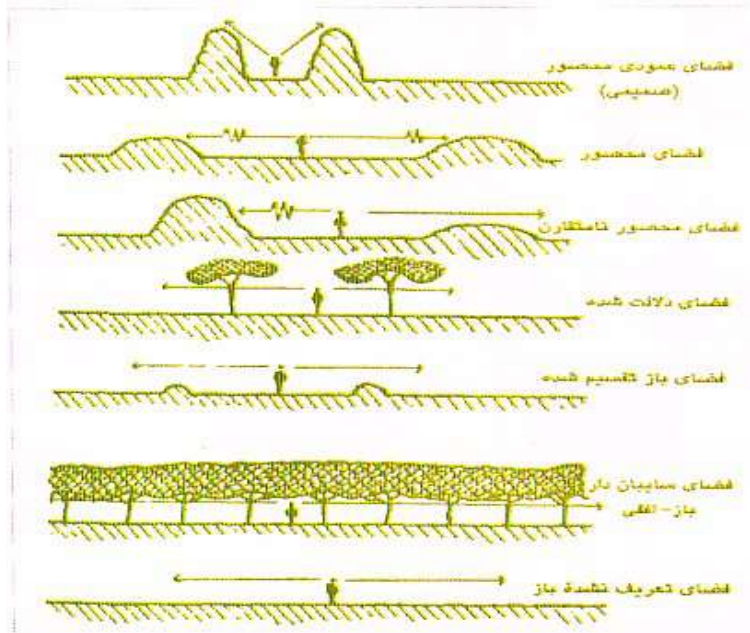 فضای عمودی محصور
(صمیمی)
فضای محصور
فضای محصور نامتقارن
فضای دلالت شده
فضای باز تقسیم شده
فضای سایبان دار
باز-افقی
فضای تعریف نشدهٔ باز